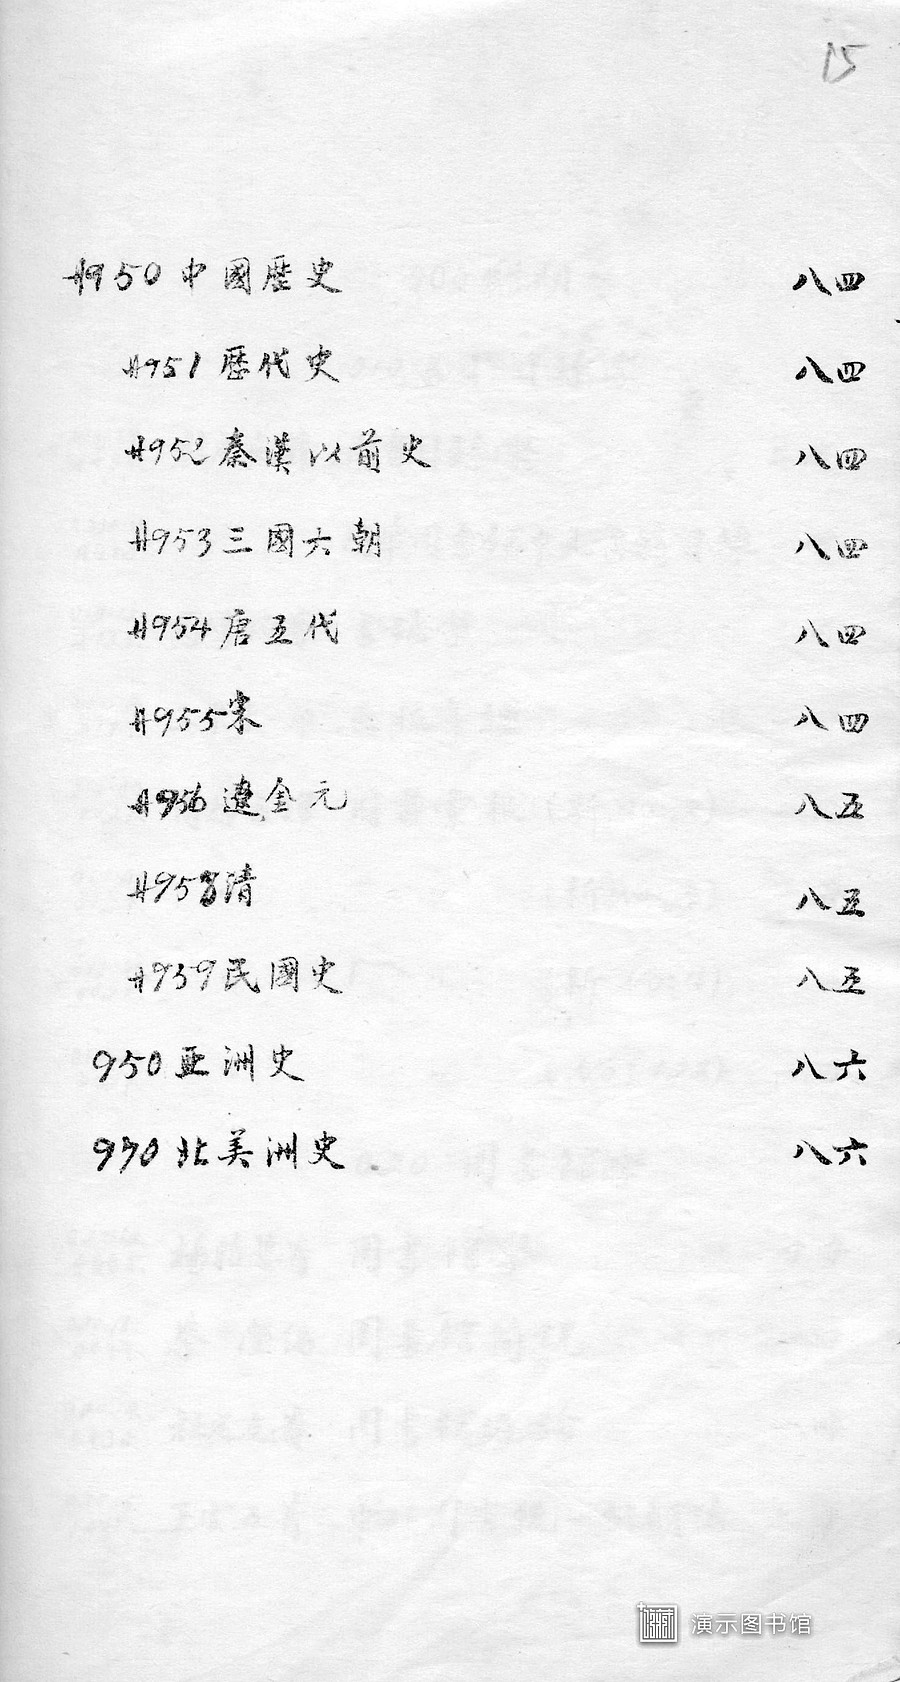 15
卄950 中國歷史 八四
卄951 歷代史 八四
卄952 秦漢以前史 八四
卄953 三國六朝 八四
卄954 唐五代 八四
卄955 宋 八四
卄956 遼金元 八五
卄958 清 八五
卄959 民國史 八五
950 亚洲史 八六
970 北美洲史. 八六
演示图书馆